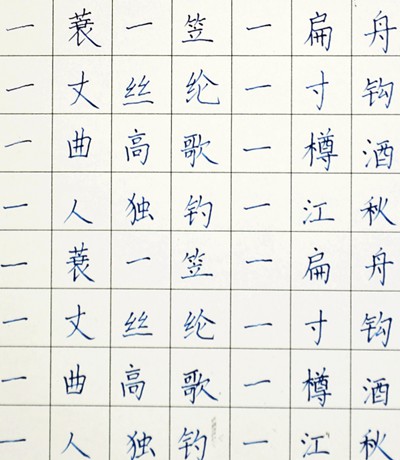 一蓑一笠一扁舟
一丈丝纶一寸钩
一曲高歌一樽酒
一人独钓一江秋
一蓑一笠一扁舟
一丈丝纶一寸钩
一曲高歌一樽酒
一人独钓一江秋